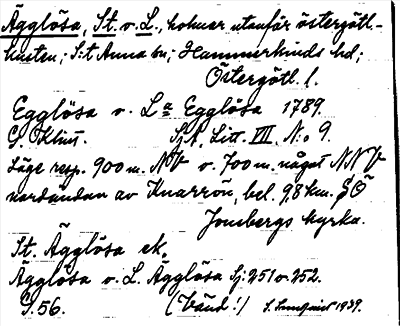 Ägglösa, St. o. L., holmar utanför östergötl.-
kusten; S:t Anna sn; Hammarkinds hd;
Östergötl. l.
Egglösa o. L:a Egglösa 1789.
G. Klint. SjA, Litt. VII, N:o 9.
Läge resp. 900 m. NV o. 700 m. något NNV
nordändan av Knarrön, bel. 9,8 km. SÖ
Jonsbergs kyrka.
St. Ägglösa ek.
Ägglösa o. L. Ägglösa Sj: 251 o. 252.
G. 56. (båud :) 1939.